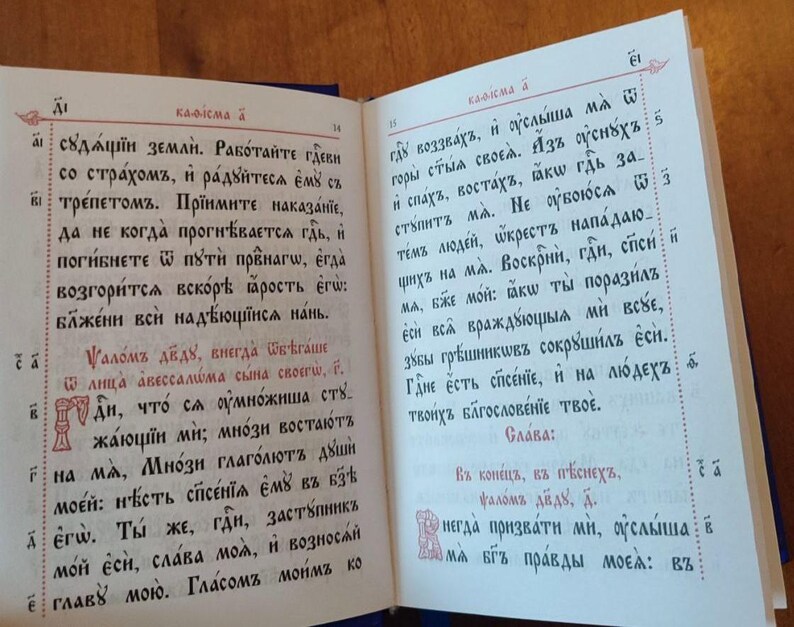 д҃і
каѳі́сма а҃
14
а҃і
судѧ́щїи земли́. Рабо́тайте гдⷭ҇еви
со стра́хомъ, и҆ ра́дуйтесѧ є҆мꙋ̀ съ
в҃і
тре́петомъ. Прїими́те наказа́нїе,
да не когда̀ прогнѣ́ваетсѧ гдⷭ҇ь, и҆
поги́бнете ѿ пꙋтѝ првⷣнагѡ, є҆гда̀
возгори́тсѧ вско́рѣ ꙗ҆́рость є҆гѡ̀:
бл҃же́ни всѝ надѣ́ющїисѧ на́нь.
Ѱало́мъ дв҃дꙋ, внегда̀ ѿбѣга́ше
с҃ а҃
ѿ лица̀ а҆вессалѡ́ма сы́на своегѡ̀, г҃.
в҃
Гдⷭ҇и, что́ сѧ ᲂу҆мно́жиша стꙋ-
жа́ющїи мѝ; мно́зи востаю́тъ
г҃
на мѧ̀, Мно́зи глаго́лютъ дꙋшѝ
мое́й: нѣ́сть спⷭ҇е́нїѧ є҆мꙋ̀ въ бз҃ѣ
д҃
є҆гѡ̀. Ты́ же, гдⷭ҇и, застꙋ́пникъ
мо́й є҆сѝ, сла́ва моѧ̀, и҆ возносѧ́й
є҃
главꙋ̀ мою̀. Гла́сомъ мои́мъ ко
є҃і
каѳі́сма а҃
15
гдⷭ҇ꙋ воззва́хъ, и҆ ᲂу҆слы́ша мѧ̀ ѿ
ѕ҃
горы̀ ст҃ы́ѧ своеѧ̀. А҆́зъ ᲂу҆снꙋ́хъ
и҆ спа́хъ, воста́хъ, ꙗ҆́кѡ гдⷭ҇ь за-
з҃
стꙋ́питъ мѧ̀. Не ᲂу҆бою́сѧ ѿ
те́мъ люде́й, ѡ҆́крестъ напа́даю-
и҃
щихъ на мѧ̀. Воскрⷭ҇нѝ, гдⷭ҇и, спⷭ҇сѝ
мѧ̀, бж҃е мо́й: ꙗ҆́кѡ ты̀ порази́лъ
є҆сѝ всѧ̑ враждꙋ́ющыѧ мѝ всꙋ́е,
зꙋ́бы грѣ́шникѡвъ сокрꙋши́лъ є҆сѝ.
ѳ҃
Гдⷭ҇не є҆́сть спⷭ҇е́нїе, и҆ на лю́дехъ
твои́хъ блгⷭ҇ослове́нїе твоѐ.
Сла́ва:
с҃ а҃
Въ коне́цъ, въ пѣ́снехъ,
ѱало́мъ дв҃дꙋ, д҃.
в҃
Внегда̀ призва́ти мѝ, ᲂу҆слы́ша
мѧ̀ бг҃ъ пра́вды моеѧ̀: въ